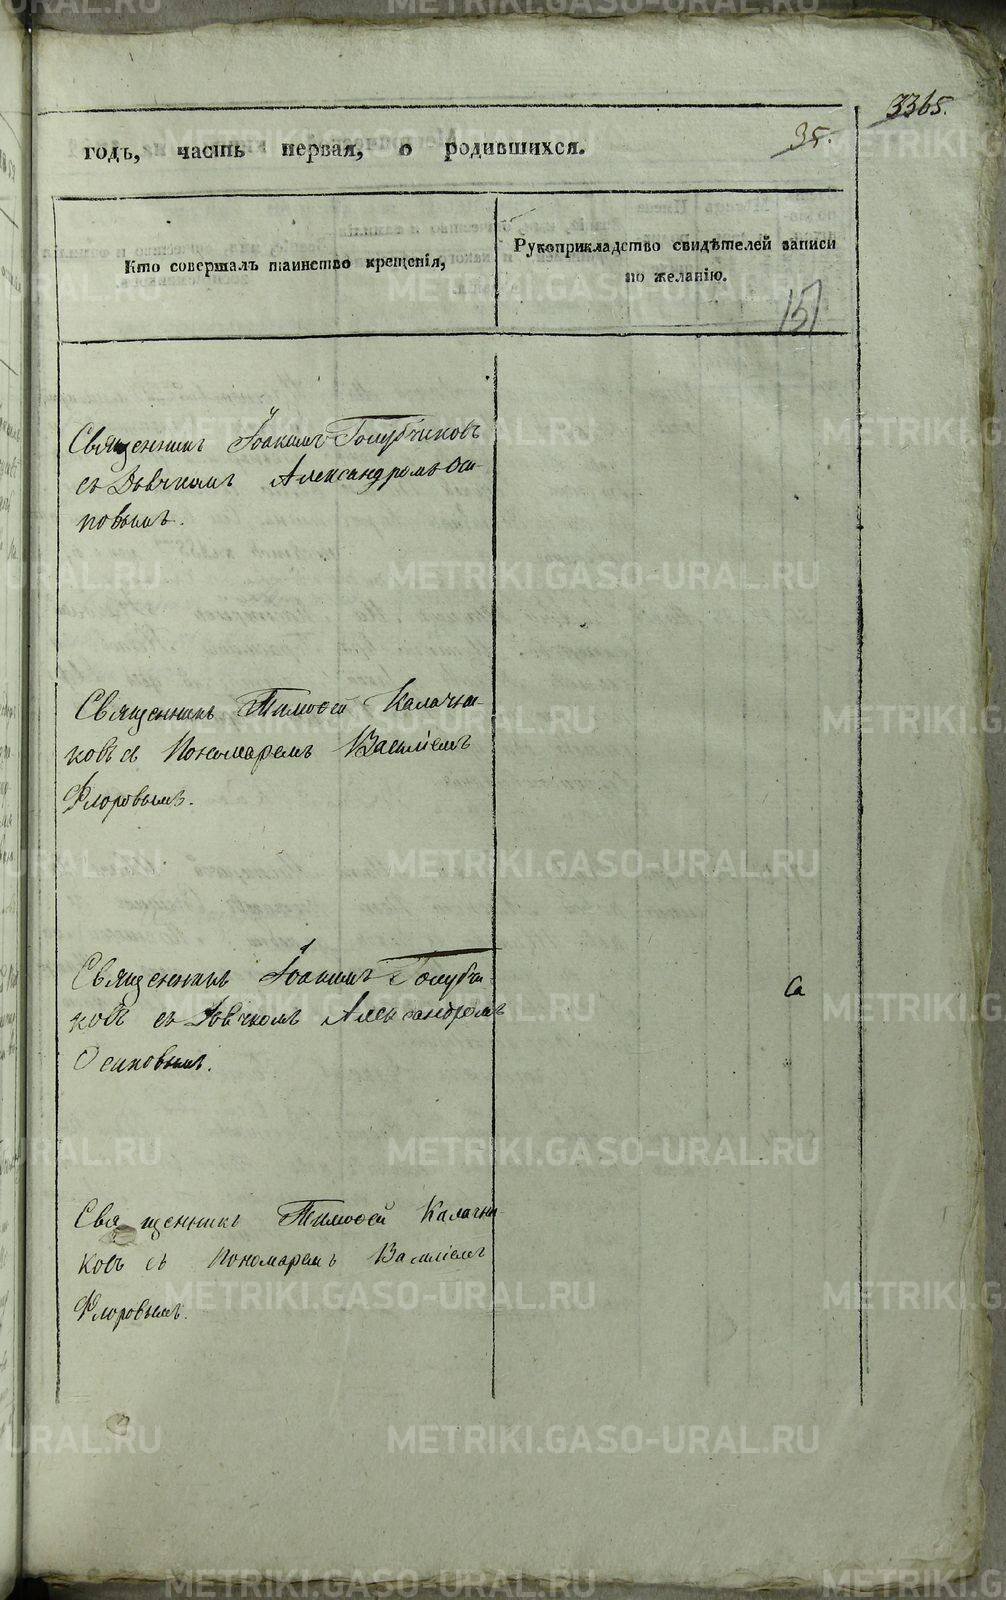 3365.
35.
годъ, часть первая, о родившихся.
Кто совершалъ таинство крещенія,
Рукоприкладство свидѣтелей записи
по желанію.
151
Священникъ Іоакимъ Голубчиковъ
съ Дьячкомъ Александромъ Оси-
повымъ.
Священникъ Тимоѳей Калачни-
ковъ съ Пономаремъ Василіемъ
Флоровымъ.
Священникъ Іоакимъ Голубчи-
ковъ съ Дьячкомъ Александромъ
Осиповымъ.
Священникъ Тимоѳей Калачни-
ковъ съ Пономаремъ Василіемъ
Флоровымъ.
METRIKI.GASO-URAL.RU